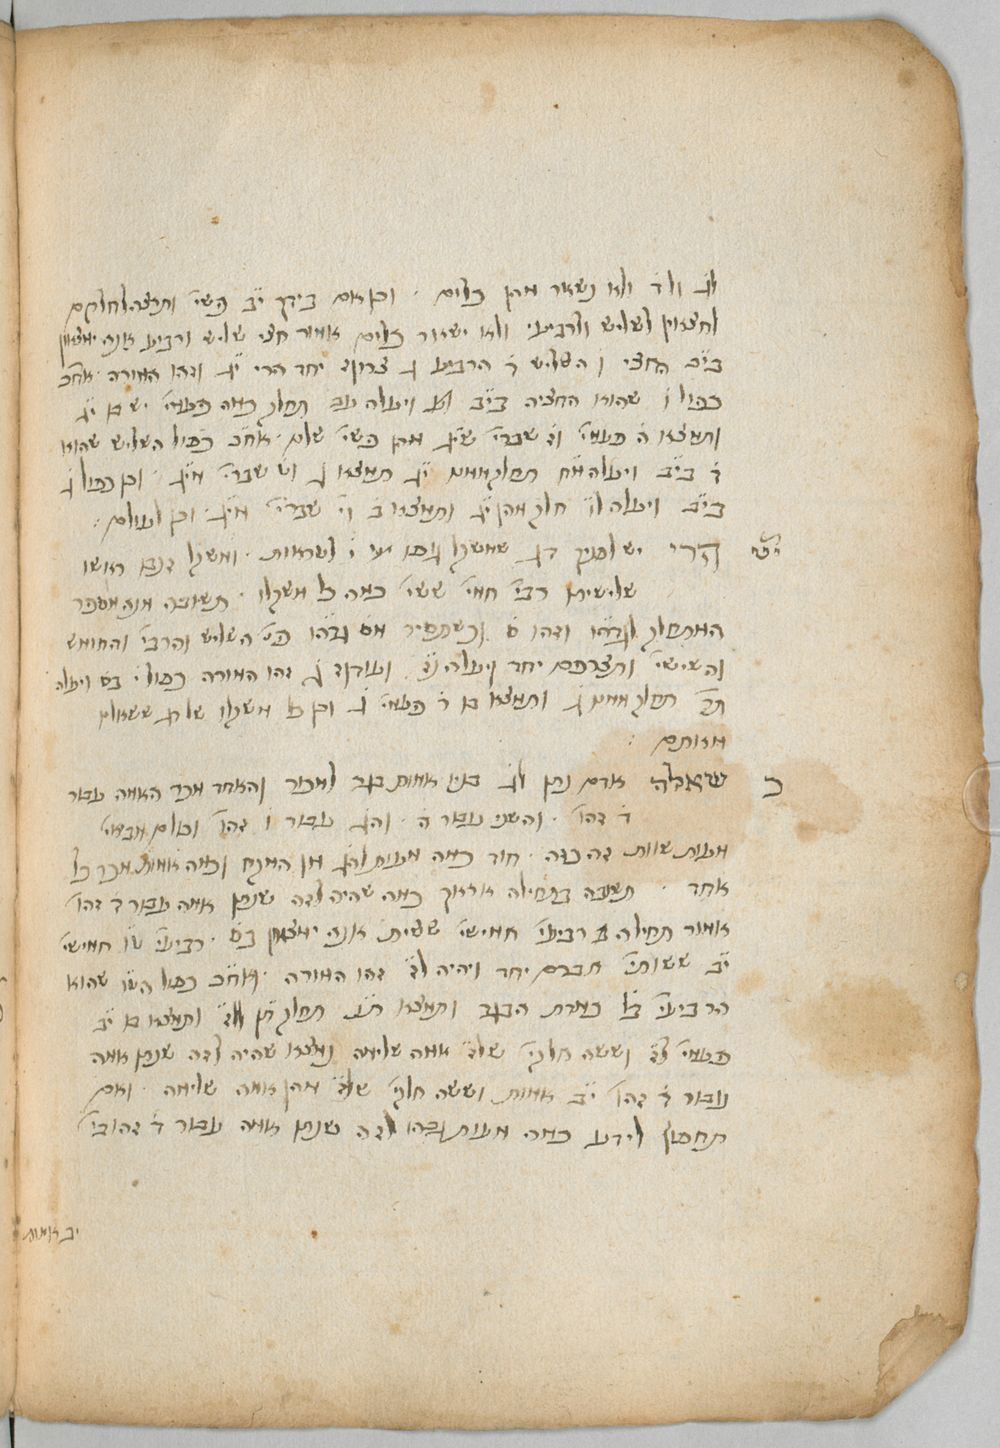 לג ולד ולא נשאר מהן כלום · וכן אם בידך י״ב קשי׳ ותרצה לחלקם
לחצאין לשליש ולרביעי ולא ישאר כלום אמור חצי שליש ורביע אנה ימצאון
בי״ב החצי ו השליש ד הרביע ג צרופם יחד הרי י״ג וזהו המורה · אח״כ
כפול ו שהוא החציה בי״ב ויעלה עב תחלק כמה פעמי׳ יש בם י״ג
ותמצא ה פעמי׳ וז שברי׳ שי״ג מהן קשי׳ שלם · אח״כ כפול השליש שהוא
ד בי״ב ויעלה מ״ח תחלק מהם י״ג תמצא ג וט שברי׳ מי״ג · וכן כפול ג
בי״ב ויעלה ל״ו חלק מהן י״ג ותמצא ב וי׳ שברי׳ מי״ג · וכן לעולם :
הרי יש לפניך דג שמשקל גופו י׳ לטראות · ומשקל זנבו ראשו
שלישית רבי׳ חמי׳ ששי׳ כמה כל משקלו · תשובה מנה מספר
המתחלק לגדהו וזהו ס וכשתסיר מס גדהו פי׳ השליש והרבי׳ והחומש
והשישי׳ ותצרפם יחד ויעלה נ״ז ועודף ג זהו המורה כפול י׳ בס ויעלה
ת״ר תחלק מהם ג ותמצא בם ר פעמי׳ ג וכן כל משקלו של דג ששאלו
אותם :
כ שאלה אדם נתן לג בניו אמות בגד למכור והאחד מכר האמה עבור
ד זהו׳ · והשני עבור ה · והג עבור ו זהו׳ וכולם הביאו
מעות שוות זה כזה · חוד כמה מעות לקח מן המקח וכמה אמות מכר כל
אחד · תשובה בתחילה אראך כמה שהיה לזה שנתן אמה עבור ד זהו׳
אמור תחילה רביעי׳ חמישי׳ ששית אנה ימצאון בס · רביעי׳ ט״ו חמישי׳
י״ב ששותי׳ חברם יחד ויהיה ל״ז זהו המורה · ואח״כ כפול הט״ו שהוא
הרביעי׳ כמדת הבגד ותמצא תחלק ל״ז ותמצא בם י״ב
פעמי׳ ל״ז וששה חלקי׳ של״ז אמה שלימה נמצא שהיה לזה שנתן אמה
עבור ד זהו׳ י״ב אמות וששה חלקי׳ של״ז מהן אמה שלימה · ואם
תחפוץ לידע כמה מעות גבה לזה שנתן אמה עבור ד זהובי׳
יב אמות